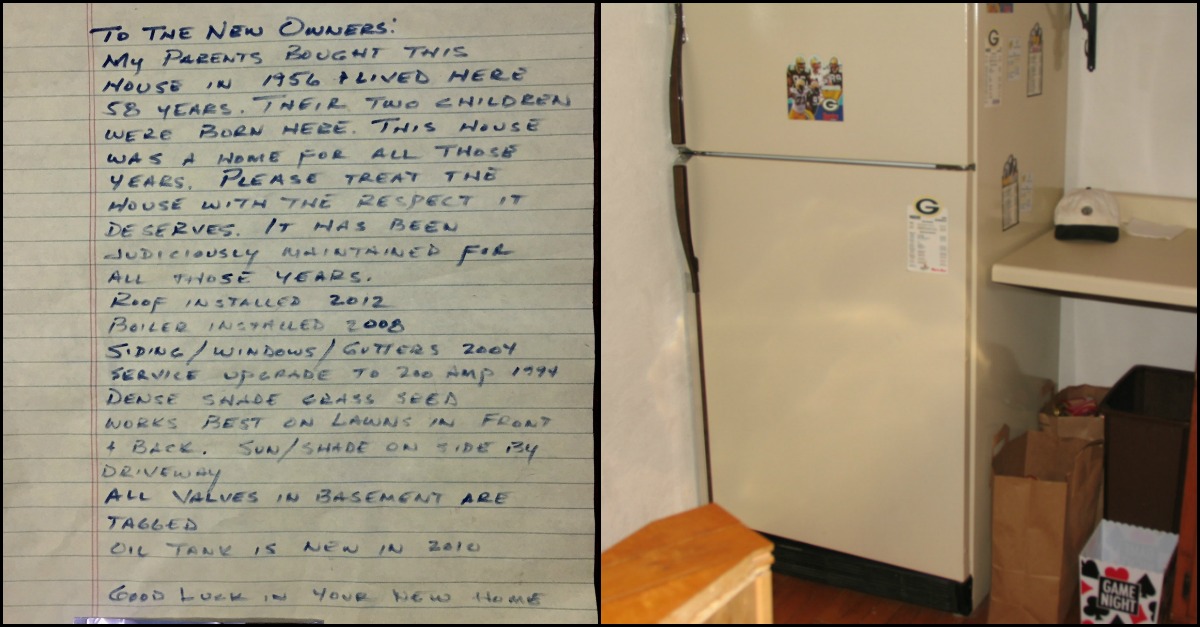 TO THE NEW OWNERS:
MY PARENTS BOUGHT THIS
HOUSE IN 1956 + LIVED HERE
58 YEARS. THEIR TWO CHILDREN
WERE BORN HERE. THIS HOUSE
WAS A HOME FOR ALL THOSE
YEARS. PLEASE TREAT THE
HOUSE WITH THE RESPECT IT
DESERVES. IT HAS BEEN
JUDICIOUSLY MAINTAINED FOR
ALL THOSE YEARS.
ROOF INSTALLED 2012
BOILER INSTALLED 2008
SIDING/WINDOWS/GUTTERS 2004
SERVICE UPGRADE TO 200 AMP 1994
DENSE SHADE GRASS SEED
WORKS BEST ON LAWNS IN FRONT
+ BACK. SUN/SHADE ON SIDE BY
DRIVEWAY
ALL VALVES IN BASEMENT ARE
TAGGED
OIL TANK IS NEW IN 2010
GOOD LUCK IN YOUR NEW HOME
G
G
G
GAME
NIGHT